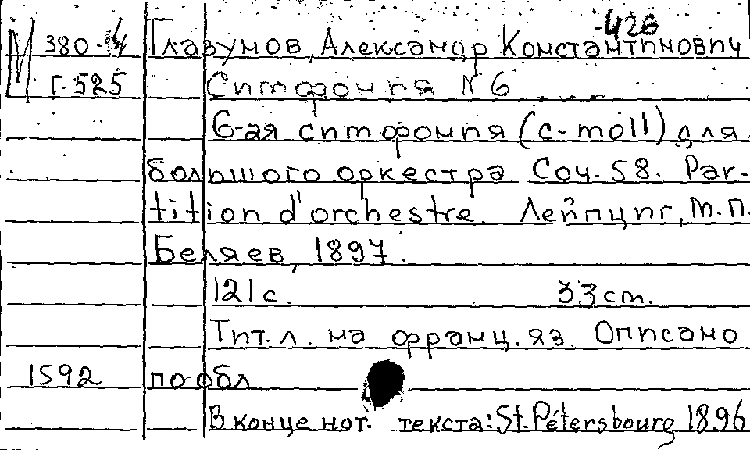 -426
М 380-4 Глазунов, Александр Константинович
Г-525 Симфония N 6
6-ая симфония (c-moll) для
большого оркестра Соч. 58. Par-
tition d'orchestre. Лейпциг, М.П.
Беляев, 1897.
121 с. 33 см.
Тит. л. на франц. яз. Описано
1592 по обл.
В конце нот. текста: St. Pétersbourg 1896